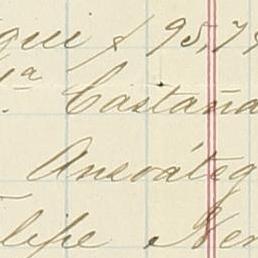 qui $ 95,75
ª. Castaña
Ansoáteg
lipe Ner